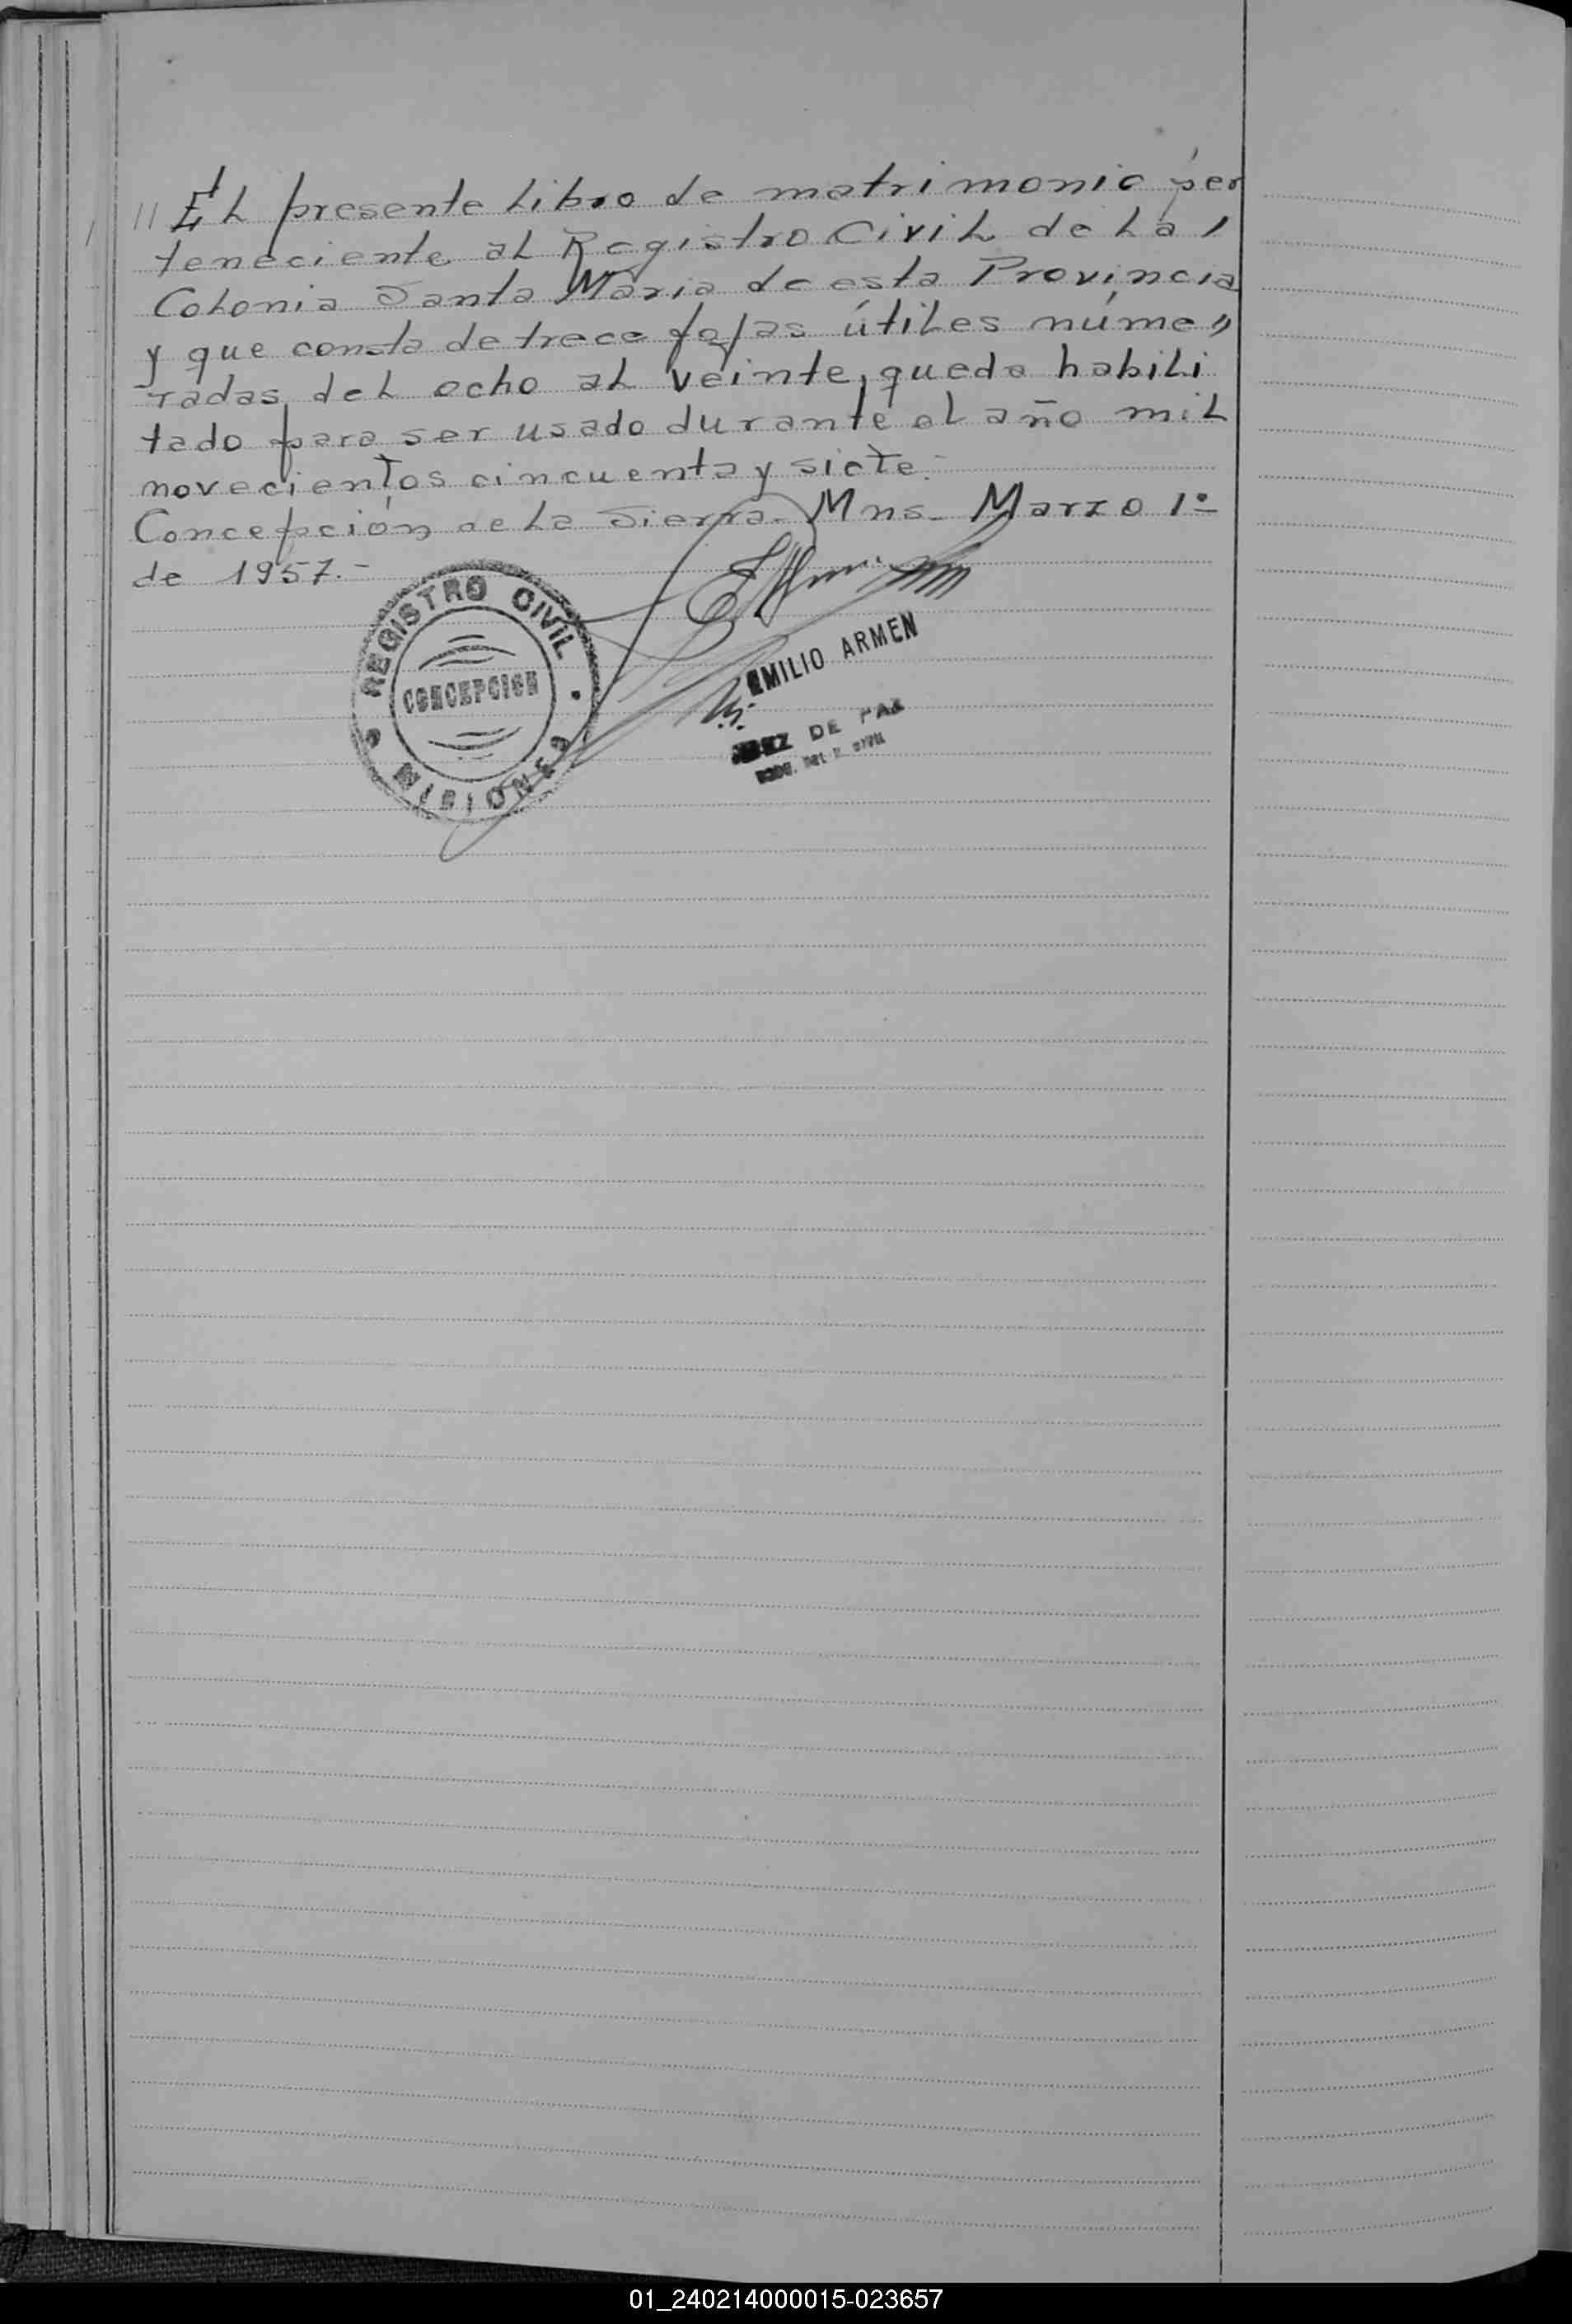 // El presente libro de matrimonio per
teneciente al Registro Civil de la /
Colonia Santa Maria de esta Provincia
y que consta de trece fojas útiles núme "
radas del ocho al veinte, queda habili
tado para ser usado durante el año mil
novecientos cincuenta y siete.-
Concepción de la Sierra - Mns - Marzo 1º
de 1957.-
REGISTRO CIVIL
CONCEPCION
MISIONES
EMILIO ARMEN
JUEZ DE PAZ
01_240214000015-023657